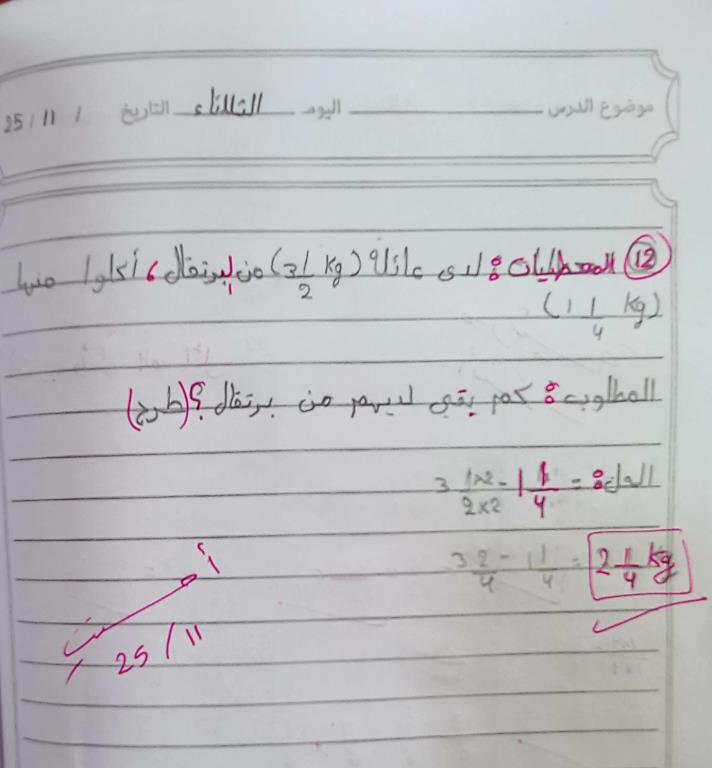 موضوع الدرس اليوم الثلاثاء التاريخ 25 / 11 /
12 المعطيات: لدى عائلة (3 1/2 Kg) من برتقال، أكلوا منها
(1 1/4 Kg)
المطلوب: كم بقي لديهم من برتقال؟ (طرح)
الحل: = 3 1×2/2×2 - 1 1/4
3 2/4 - 1 1/4 = 2 1/4 Kg
أحسنت
25 / 11